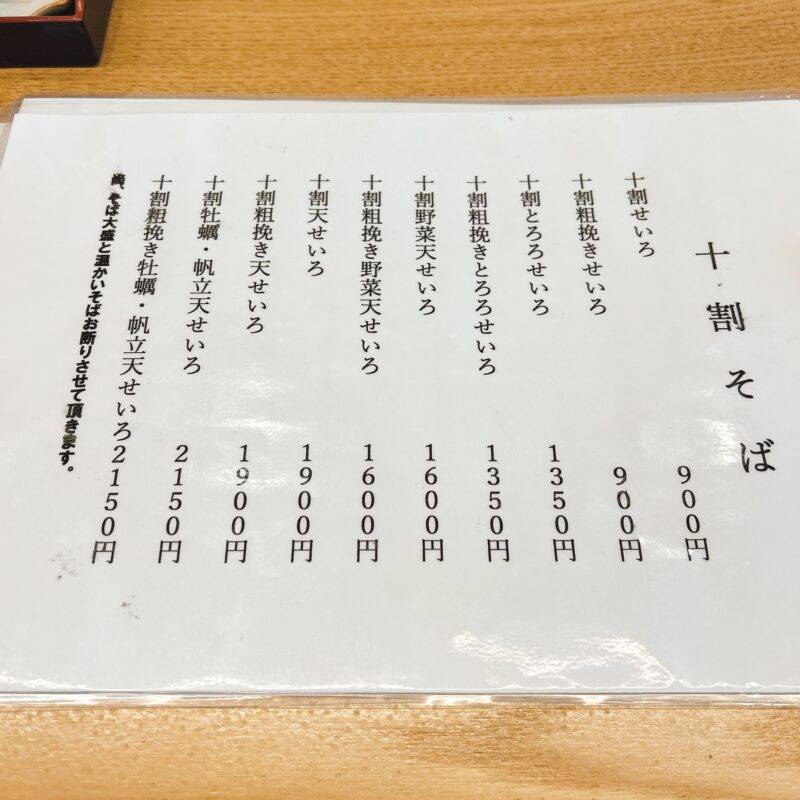 十割そば
十割せいろ 900円
十割粗挽きせいろ 900円
十割とろろせいろ 1350円
十割粗挽きとろろせいろ 1350円
十割野菜天せいろ 1600円
十割粗挽き野菜天せいろ 1600円
十割天せいろ 1900円
十割粗挽き天せいろ 1900円
十割牡蠣・帆立天せいろ 2150円
十割粗挽き牡蠣・帆立天せいろ2150円
尚、そば大盛と温かいそばお断りさせて頂きます。